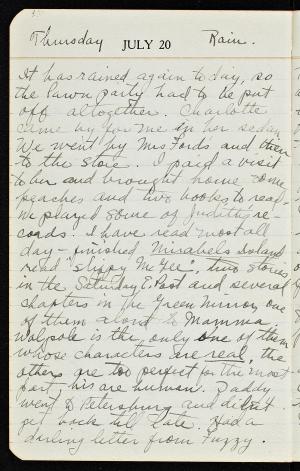 Thursday JULY 20 Rain.
It has rained again today, so
the lawn party had to be put
off altogether. Charlotte
came by for me in her sedan
We went by Mrs Fords and then
to the store. I paid a visit
to her and brought home some
peaches and two books to read.
We played some of Judith's re-
cords. I have read most all
day - finished Mirabels Island
read "Slippy McGee", two stories
in the Saturday E. Post and several
chapters in The Green Mirror, one
of them aloud to Mamma
Walpole is the only one of them
whose characters are real, the
others are too perfect for the most
part, his are human. Daddy
went to Petersburg and didn't
get back till late. Had a
darling letter from Fuzzy.